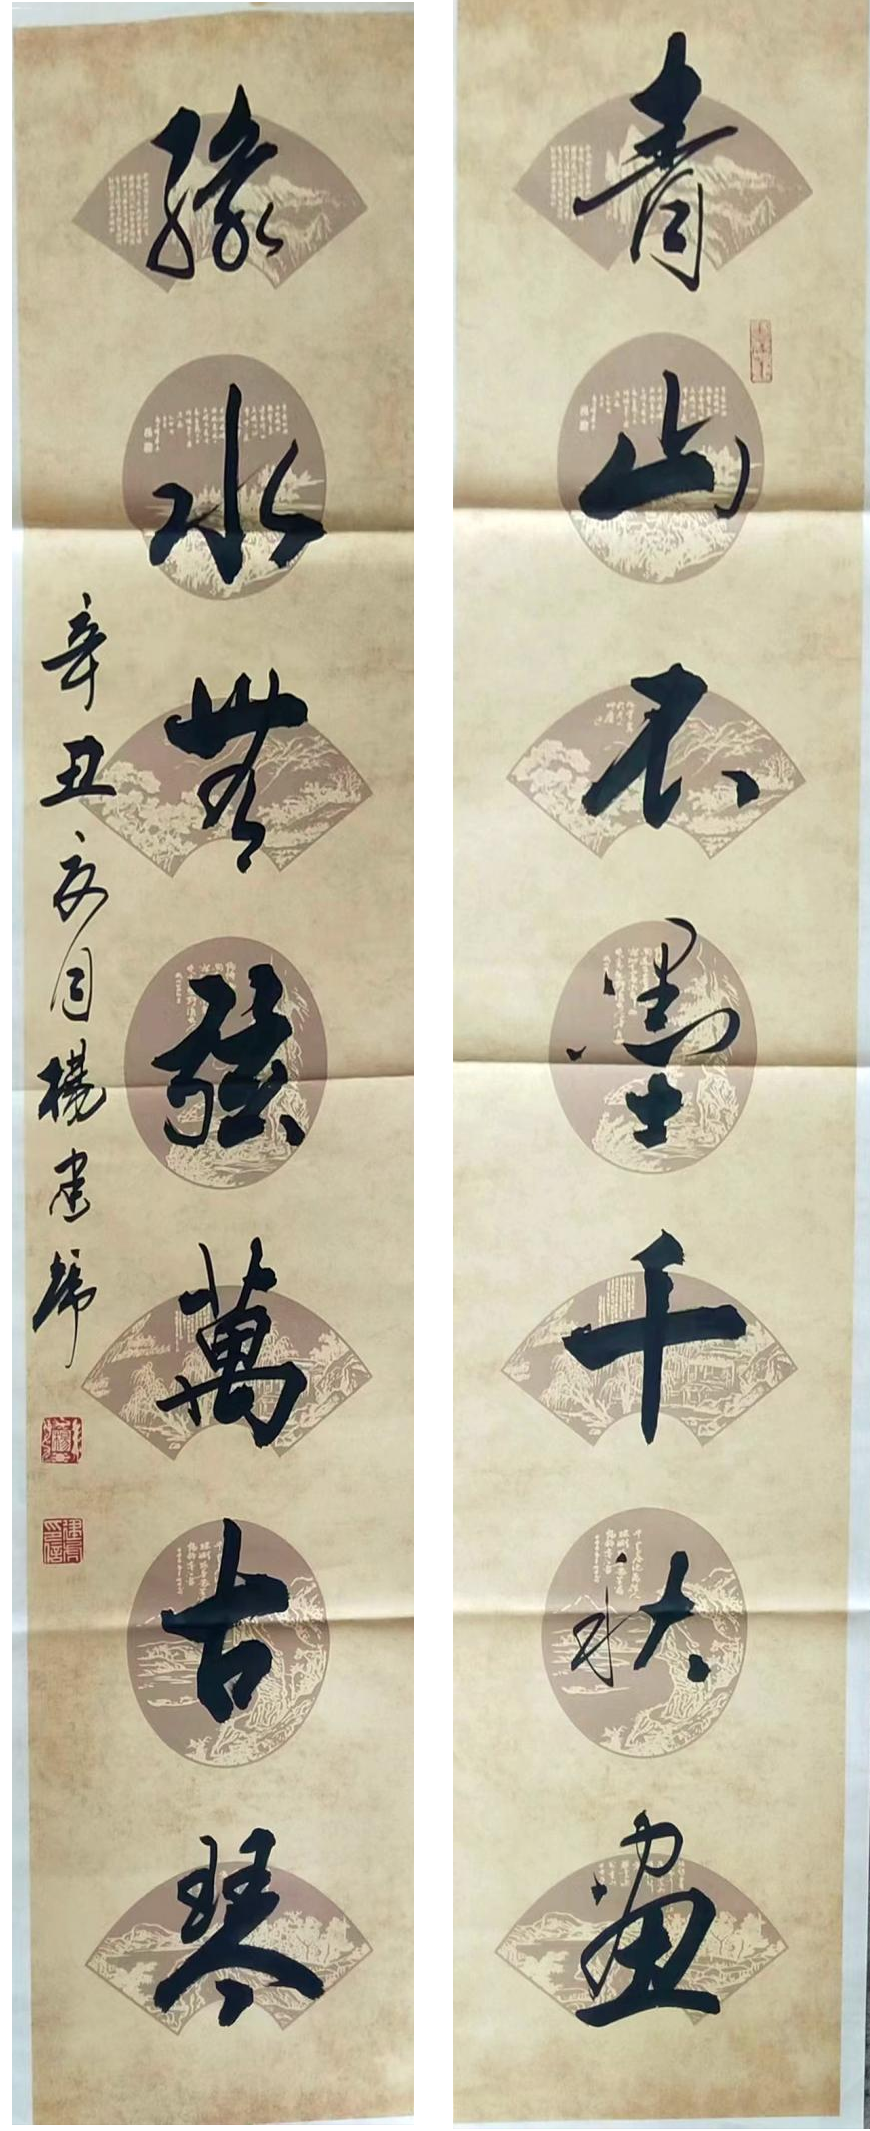 青山不墨千秋畫
綠水無弦萬古琴
辛丑夏月楊建